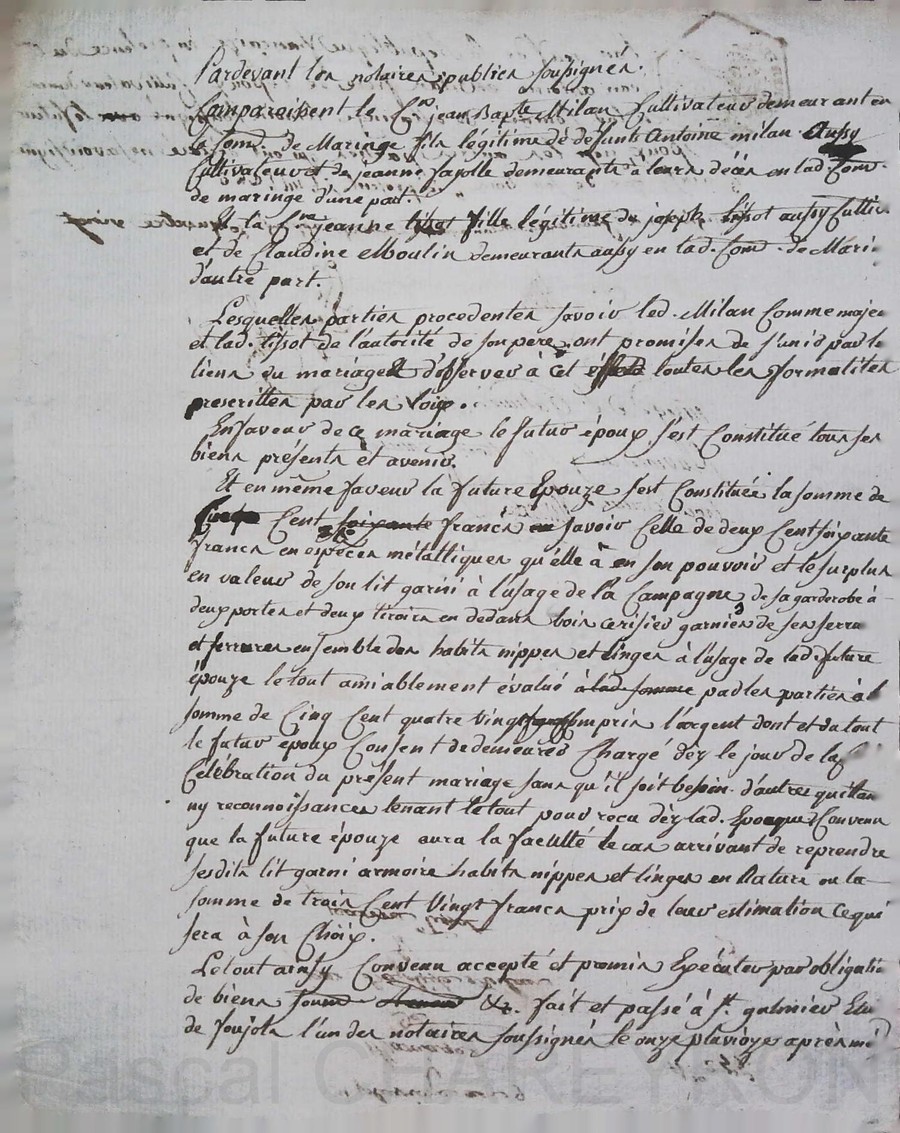 Pardevant les notaires publics soussignés.
Comparoissent le Cen jean Bapte Milan Cultivateur demeurant en
la Com. de Maringe fils légitime de défunts Antoine milan Aussy
Cultivateur et de jeanne fayolle demeurants a leurs décès en lad. Com.
de maringe d'une part.
Et la Cne jeanne tissot fille légitime du joseph tissot aussy Cultiv
et de Claudine Moulin demeurants aussy en lad. Com. de Mari
d'autre part.
Lesquelles parties procedentes savoir led. Milan Comme maje
et lad. tissot de l'autorité de son pere, ont promises de s'unir par le
liens du mariage Et d'observer à cet effet toutes les formalites
prescrittes par les loix.
En faveur de ce mariage le futur époux s'est Constitué tous ses
biens présents et avenir.
Et en même faveur la future Epouze s'est Constituée la somme de
Cinq Cent soixante francs savoir Celle de deux Cent soixante
francs en espéces métalliques qu'elle à en son pouvoir et le surplus
en valeur de son lit garni à l'usage de la Campagne, de sa garderobe à
deux portes et deux tiroirs en dedans bois cerisier garnie de ses serru
et ferrures ensemble des habits nippes et linges à l'usage de lad. future
épouze le tout amiablement évalué à lad. somme par les parties à l
somme de Cinq Cent quatre vingt compris l'argent dont et du tout
le futur époux Consent de demeurer Chargé dèz le jour de la
Célébration du présent mariage sans qu'il soit besoin d'autres quittan
ny reconnoissances tenant le tout pour recu dèz lad. Epoque Convenu
que la future épouze aura la faculté le cas arrivant de reprendre
sesdits lit garni armoire habits nippes et linges en Nature ou la
somme de trois Cent Vingt francs prix de leur estimation ce qui
sera à son Choix.
Le tout ainsy Convenu accepté et promis Exécuter par obligati
de biens &c. fait et passé à St. galmier Etu
de foujols l'un des notaires soussignés le onze pluvioze après mi